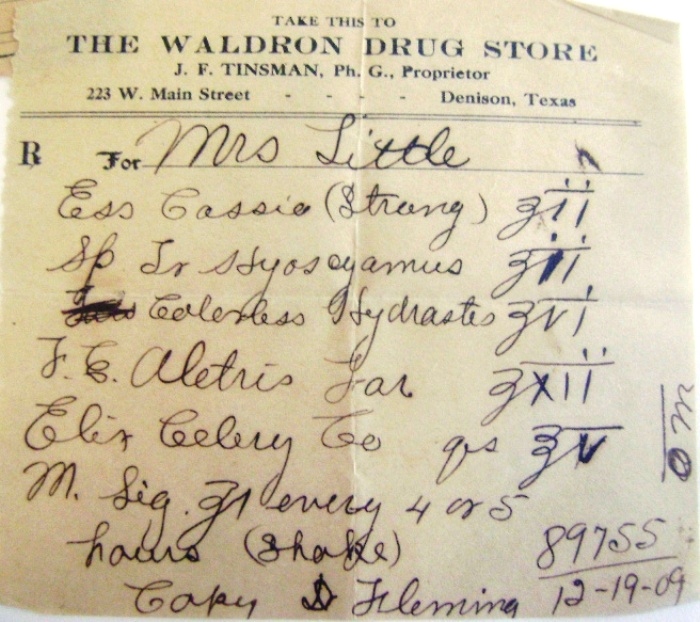 TAKE THIS TO
THE WALDRON DRUG STORE
J. F. TINSMAN, Ph. G., Proprietor
223 W. Main Street - - - - Denison, Texas
℞ For Mrs Little
Ess Cassia (Strong) ʒii
Sp Tr Hyoscyamus ʒii
Colorless Hydrastes ʒvi
F. E. Aletris Far ʒxii
Elix Celery Co qs ℥v
M. Sig. ʒ1 every 4 or 5
hours (Shake)
89755
Copy Dr Fleming 12-19-09